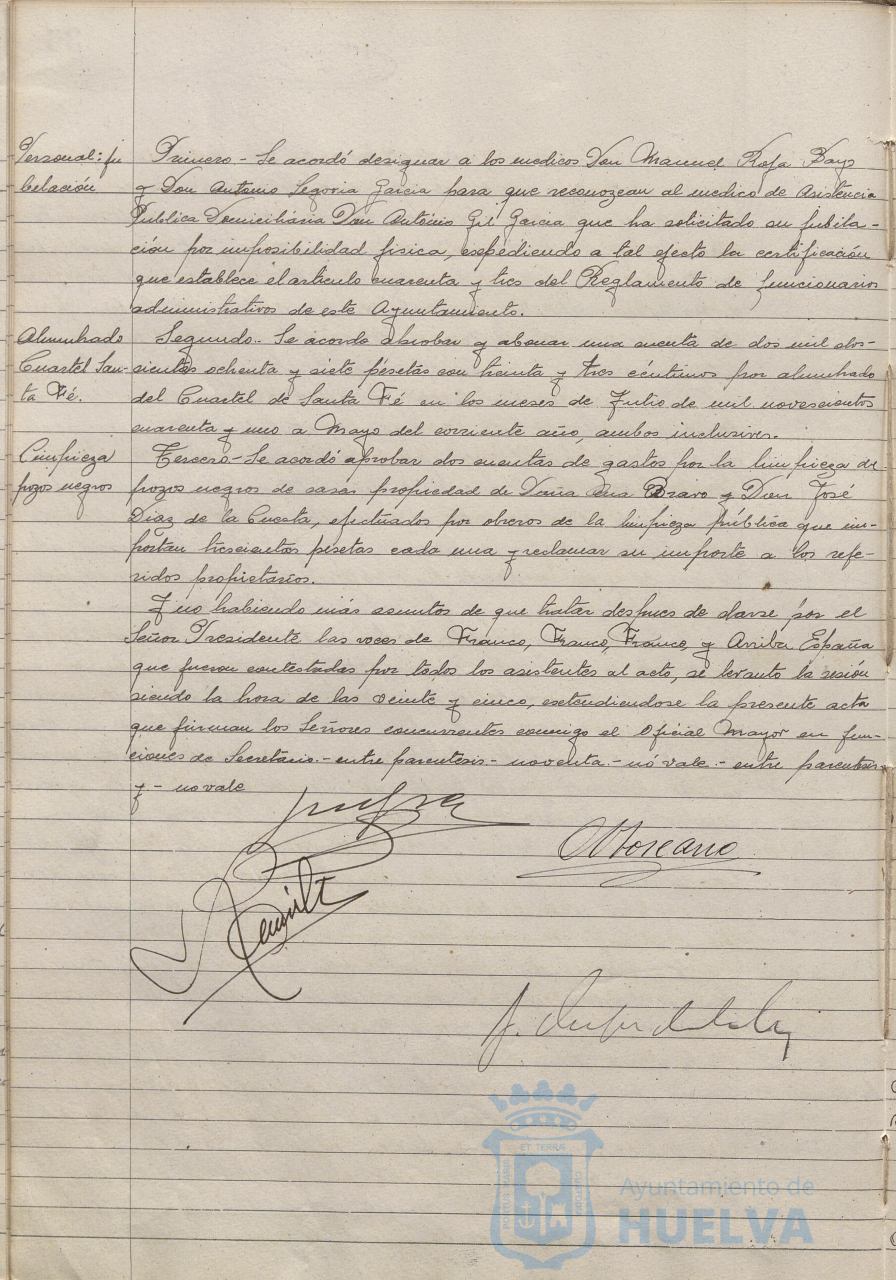 Personal: ju
belación
Primero.- Se acordó designar a los medicos Don Manuel Rofa Bayo
y Don Antonio Segovia Garcia para que reconozcan al medico de Asistencia
Publica Domiciliaria Don Antonio Gil Garcia que ha solicitado su jubila-
ción por imposibilidad fisica, expediendo a tal efecto la certificación
que establece el articulo cuarenta y tres del Reglamento de funcionarios
administrativos de este Ayuntamiento.
Alumbrado
Cuartel San-
ta Fé.
Segundo.- Se acordo aprobar y abonar una cuenta de dos mil dos-
cientas ochenta y siete pesetas con treinta y tres céntimos por alumbrado
del Cuartel de Santa Fé en los meses de Julio de mil novescientos
cuarenta y uno a Mayo del corriente año, ambos inclusives.
Limpieza
pozos negros
Tercero- Se acordó aprobar dos cuentas de gastos por la limpieza de
pozos negros de casas propiedad de Doña Ana Bravo y Don José
Diaz de la Cuesta, efectuados por obreros de la limpieza pública que im-
portan trescientas pesetas cada una y reclamar su importe a los refe-
ridos propietarios.
Y no habiendo más asuntos de que tratar despues de darse por el
Señor Presidente las voces de Franco, Franco, Franco, y Arriba España
que fueron contestadas por todos los asistentes al acto, se levanto la sesión
siendo la hora de las veinte y cinco, extendiendose la presente acta
que firman los Señores concurrentes conmigo el Oficial Mayor en fun-
ciones de Secretario.- entre parentesis- noventa.- nó vale.- entre parentesis
y- no vale
PORTUS MARIS
ET TERRAE
CUSTODIA
Ayuntamiento de
HUELVA